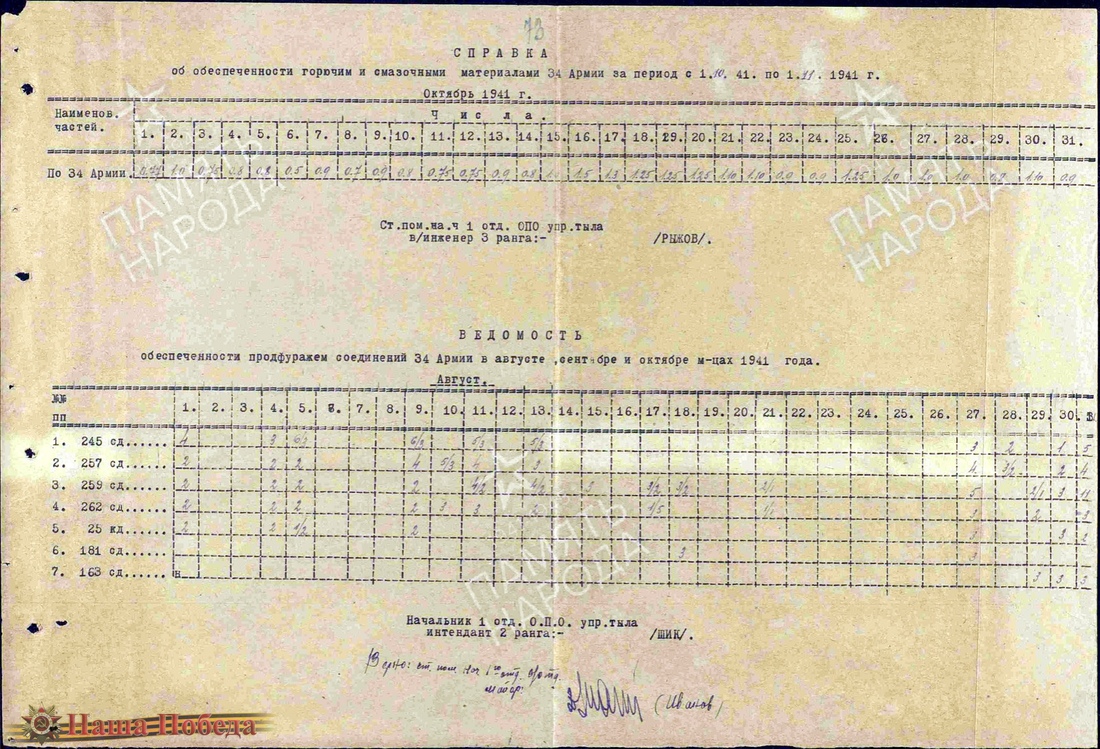 73
СПРАВКА
об обеспеченности горючим и смазочными материалами 34 Армии за период с 1.10.41. по 1.11.1941 г.
Октябрь 1941 г.
Наименов. частей.
Числа.
1. 2. 3. 4. 5. 6. 7. 8. 9. 10. 11. 12. 13. 14. 15. 16. 17. 18. 19. 20. 21. 22. 23. 24. 25. 26. 27. 28. 29. 30. 31.
По 34 Армии. 0.75 0.8 0.5 0.9 0.7 0.9 0.8 0.75 0.75 0.9 0.8 1.5 1.3 1.25 1.25 1.25 1.10 1.10 0.9 0.9 1.25 1.0 1.0 1.0 0.8 1.10 0.9
Ст.пом.на.ч 1 отд. ОПО упр.тыла
в/инженер 3 ранга:- /РЫЖОВ/.
ВЕДОМОСТЬ
обеспеченности продфуражем соединений 34 Армии в августе ,сентябре и октябре м-цах 1941 года.
Август.
№№ пп
1. 2. 3. 4. 5. 6. 7. 8. 9. 10. 11. 12. 13. 14. 15. 16. 17. 18. 19. 20. 21. 22. 23. 24. 25. 26. 27. 28. 29. 30.
1. 245 сд...... 4 3 3 2 1 5
2. 257 сд...... 2 2 2 4 5/3 4 3 4 3/2 2 4
3. 259 сд...... 2 2 2 2 4/2 3 3/2 3/2 2/1 5 2/1 3 11
4. 262 сд...... 2 2 2 2 3 3 2 1/5 1/1 3 2 3
5. 25 кд...... 2 2 1/2 2 3 3 2
6. 181 сд...... 3 3
7. 163 сд...... н 3 3 3
Начальник 1 отд. О.П.О. упр.тыла
интендант 2 ранга:- /ШИК/.
Верно: ст. пом. нач 1го отд.
майор:
(Иванов)
ПАМЯТЬ НАРОДА
ПАМЯТЬ НАРОДА
ПАМЯТЬ НАРОДА
Наша Победа